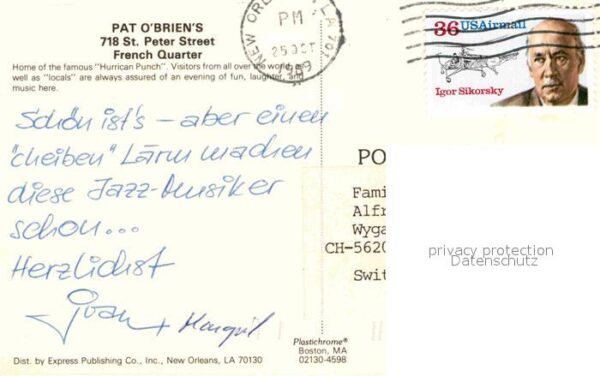 PAT O'BRIEN'S
718 St. Peter Street
French Quarter
Home of the famous "Hurrican Punch". Visitors from all over the world, as
well as "locals" are always assured of an evening of fun, laughter, and
music here.
NEW ORLEANS, LA 701
PM
25 OCT
1989
36 USAirmail
Igor Sikorsky
Schön ist's – aber einen
"cheiben" Lärm machen
diese Jazz-Musiker
schon...
Herzlichst
+
PO
Fami
Alfr
Wyga
CH-5620
Swit
privacy protection
Datenschutz
Plastichrome®
Boston, MA
02130-4598
Dist. by Express Publishing Co., Inc., New Orleans, LA 70130